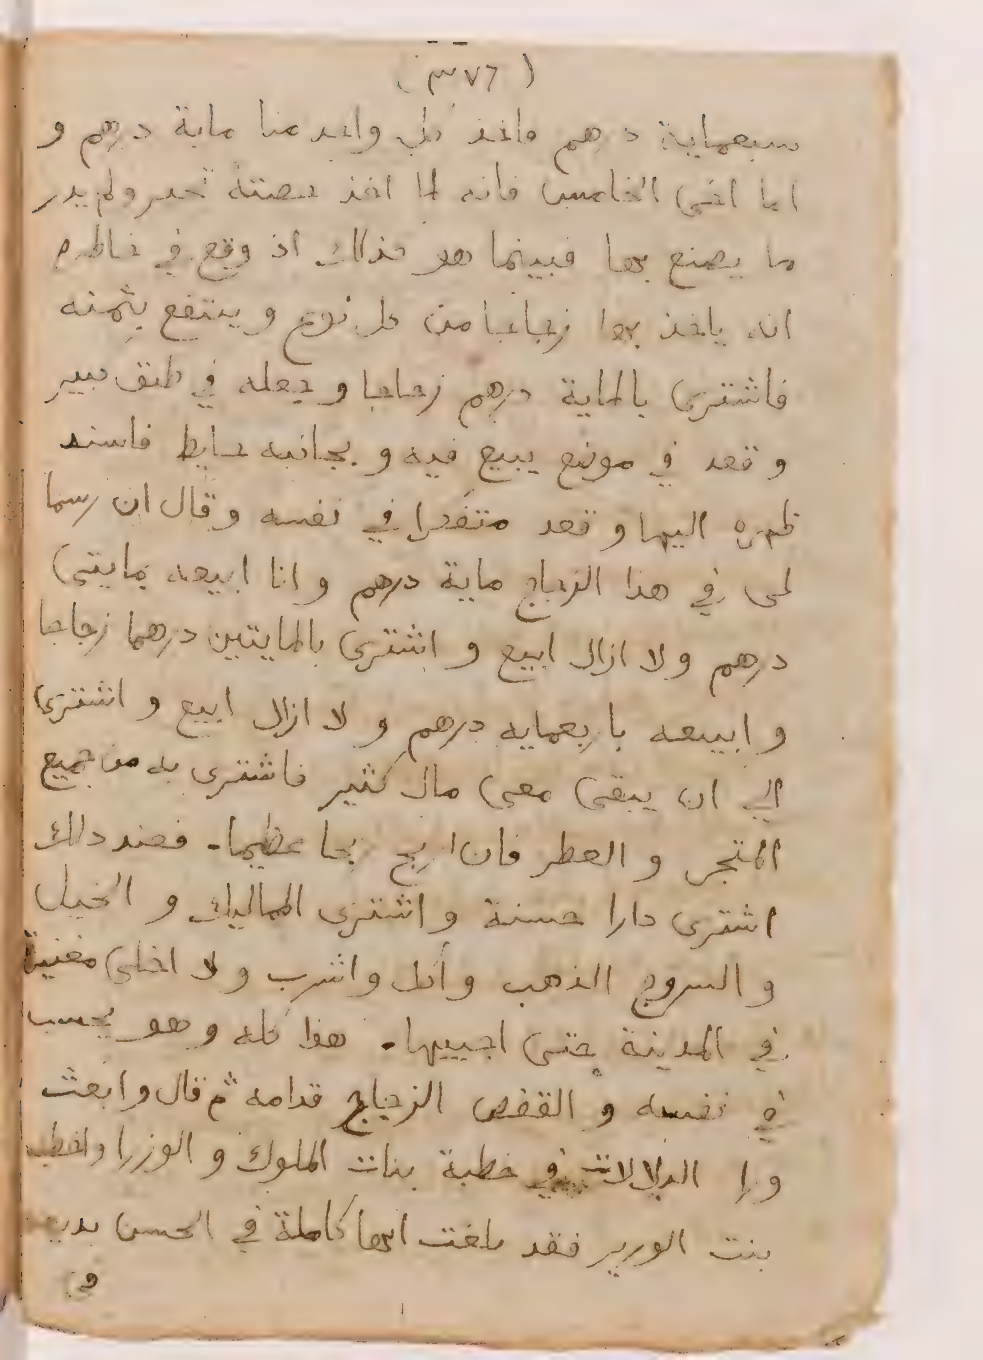 (٣٧٦)
سبعماية درهم فاخذ كل واحد منا ماية درهم و
اما اخى الخامس فانه لما اخذ حصته تحير ولم يدر
ما يصنع بها فبينما هو كذلك اذ وقع في خاطره
انه ياخذ بها زجاجا من كل نوع وينتفع بثمنه
فاشترى بالماية درهم زجاجا وجعله في طبق كبير
وقعد في موضع يبيع فيه وبجانبه حايط فاسند
ظهره اليها وقعد متفكرا في نفسه وقال ان رسما
لى في هذا الزجاج ماية درهم وانا ابيعه بمايتى
درهم ولا ازال ابيع واشترى بالمايتين درهما زجاجا
وابيعه باربعمايه درهم ولا ازال ابيع واشترى
الي ان يبقى معى مال كثير فاشترى به من جميع
المتجر والعطر فان اربح ربحا عظيما. فعند دلك
اشترى دارا حسنة واشترى المماليك والخيل
والسروج الذهب وأكل واشرب ولا اخلى مغنية
في المدينة حتى اجيبها. هذا كله وهو يحسب
في نفسه والقفص الزجاج قدامه ثم قال وابعث
ورا الدلالات في خطبة بنات الملوك والوزرا واخطب
بنت الوزير فقد بلغت انها كاملة في الحسن بديعة
في